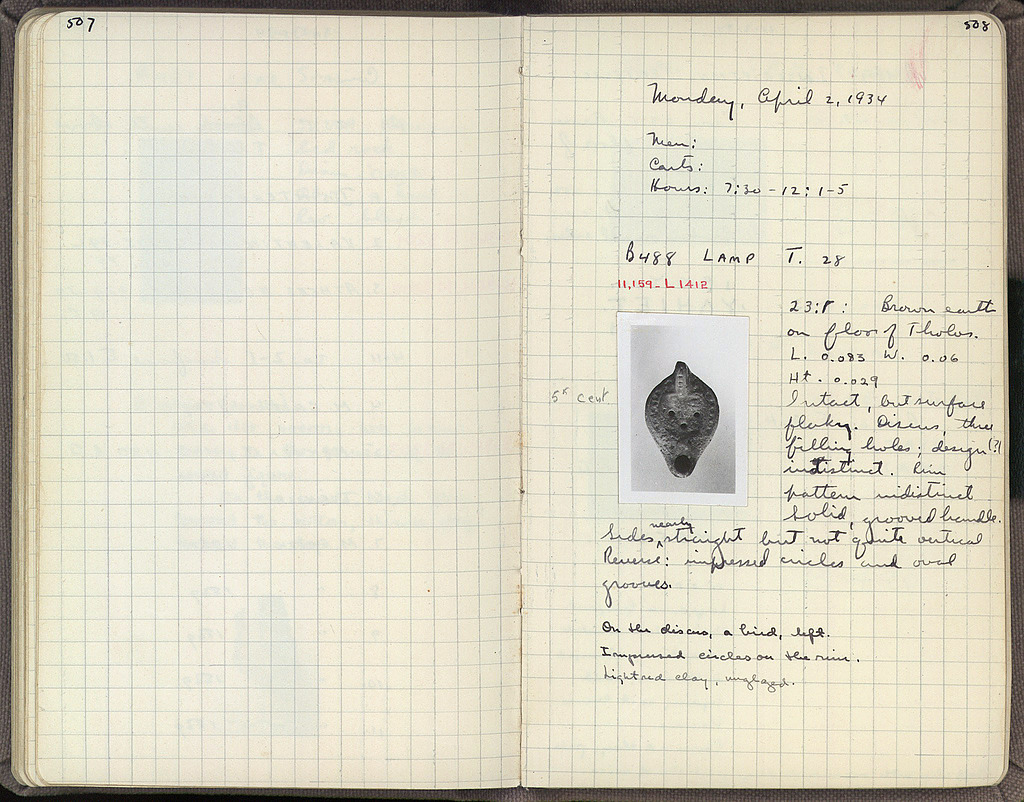 507
508
Monday, April 2, 1934
Men:
Carts:
Hours: 7:30 - 12; 1-5
B488 LAMP T. 28
11,159 - L 1412
23: : Brown earth
on floor of Tholos.
L. 0.083 W. 0.06
Ht. 0.029
5th cent.
Intact, but surface
flaky. Discus, three
filling holes; design (?)
indistinct. Rim
pattern indistinct
Solid, grooved handle.
Sides nearly straight but not quite vertical
Reverse: impressed circles and oval
grooves.
On the discus, a bird, left.
Impressed circles on the rim.
Light red clay, unglazed.